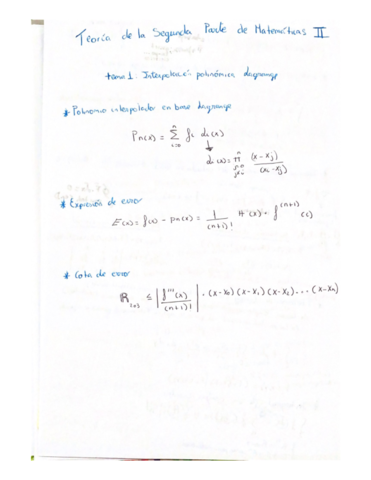 Teoría de la Segunda Parte de Matemáticas II
tema 1: Interpolación polinómica Lagrange
* Polinomio interpolador en base Lagrange
Pn(x) = Σ(i=0..n) fi Li(x)
↓
Li(x) = π(j=0, j≠i..n) (x - xj) / (xi - xj)
* Expresión de error
E(x) = f(x) - pn(x) = 1/(n+1)! π(x) · f^(n+1) (c)
* Cota de error
R(x) ≤ | f'''(x) / (n+1)! | · (x-x0) (x-x1) (x-x2) ... (x-xn)